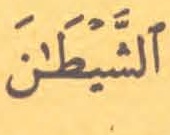 ٱلشَّيۡطَٰنَ